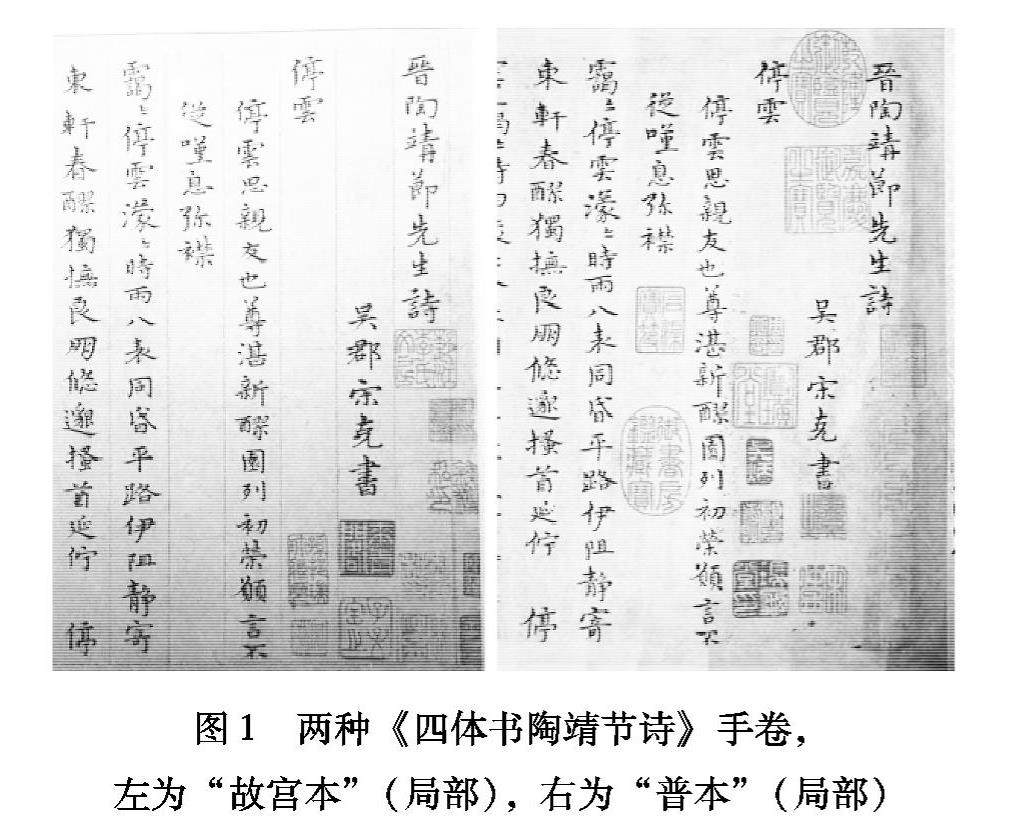 晉陶靖節先生詩
吳郡宋克書
停雲
停雲思親友也尊湛新醪園列初榮願言不
從嘆息弥襟
靄〻停雲濛〻時雨八表同昏平路伊阻静寄
東軒春醪獨撫良朋悠邈搔首延佇 停
晉陶靖節先生詩
吳郡宋克書
停雲
停雲思親友也尊湛新醪園列初榮願言不
從嘆息弥襟
靄〻停雲濛〻時雨八表同昏平路伊阻静寄
東軒春醪獨撫良朋悠邈搔首延佇 停
图1 两种《四体书陶靖节诗》手卷，
左为“故宫本”（局部），右为“普本”（局部）